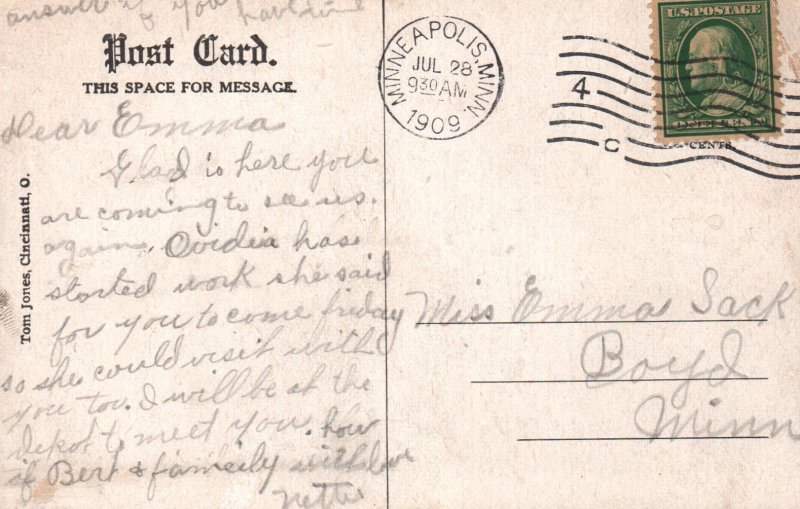 answer if you
Post Card.
THIS SPACE FOR MESSAGE.
Dear Emma
Glad is here you
are coming to see us.
again. Ovidia has
started work she said
for you to come friday
so she could visit with
you too. I will be at the
depot to meet you. how
is Bert & family with love
Nettie
Tom Jones, Cincinnati, O.
MINNEAPOLIS, MINN.
JUL 28
930 AM
1909
4
C
U.S. POSTAGE
CENTS
Miss Emma Sack
Boyd
Minn